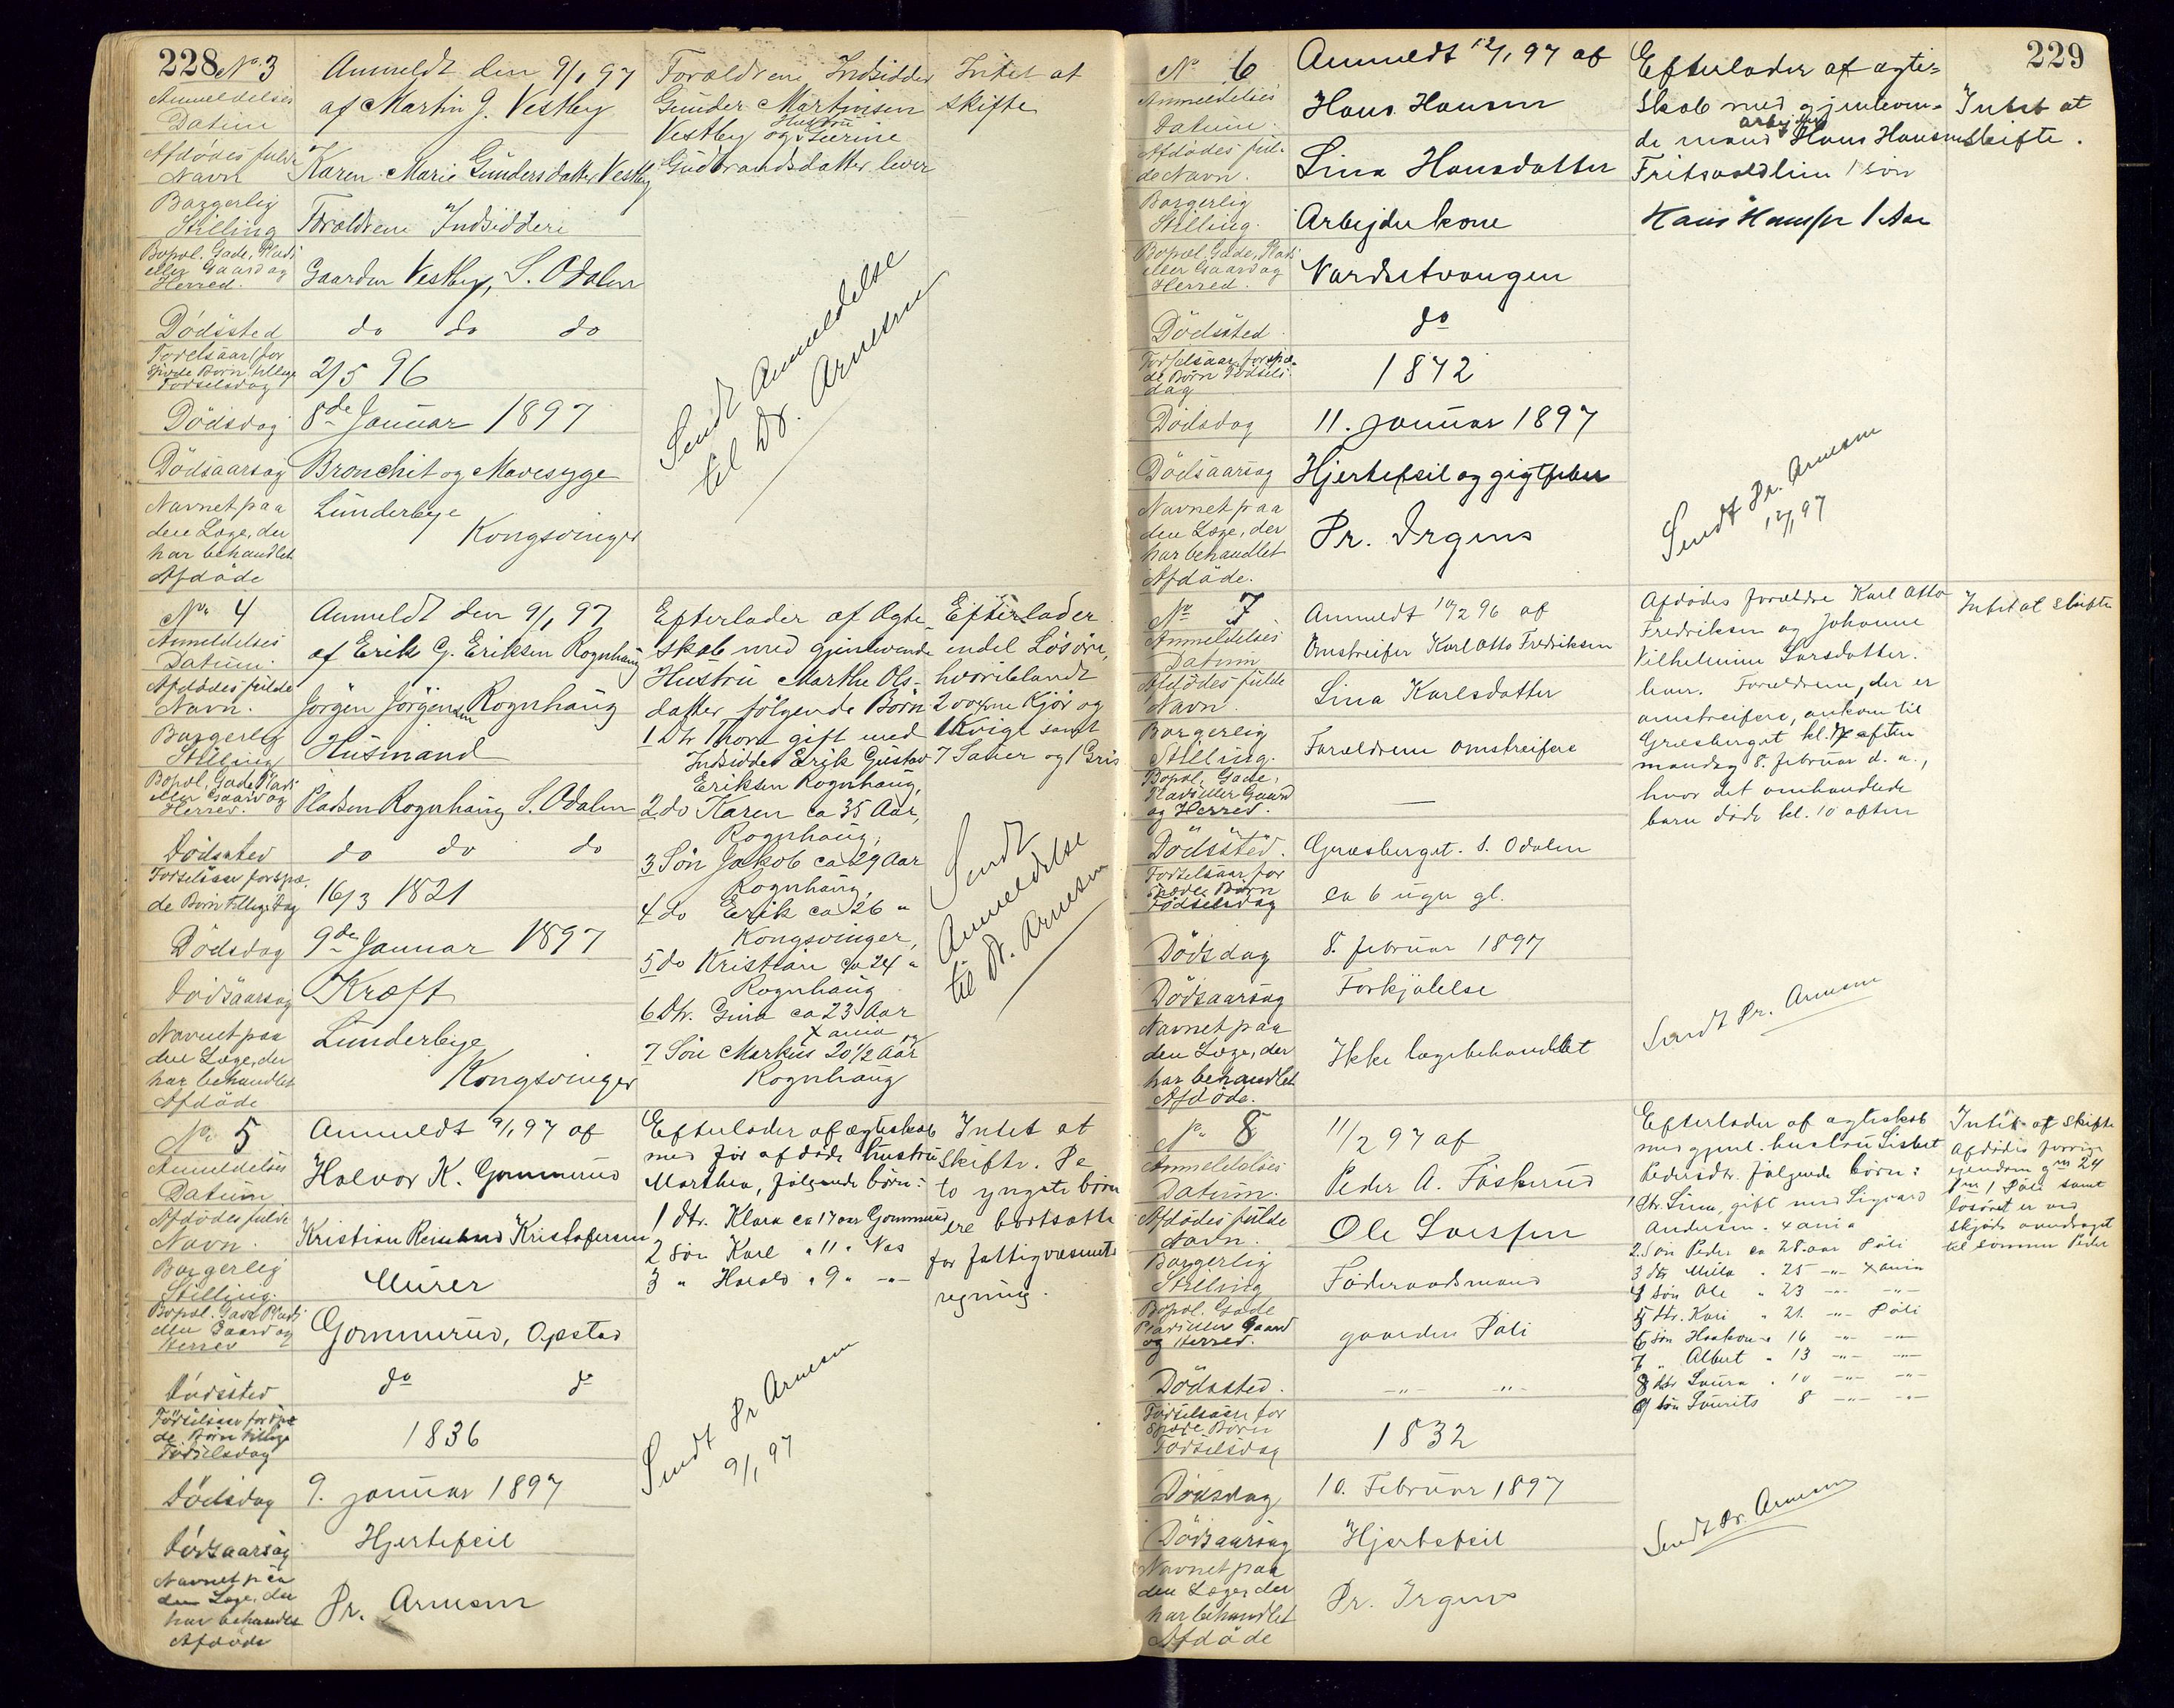 228 No. 3
Anmeldelses Datum
Anmeldt den 9/1 97
af Martin G. Vestby
Afdödes fulde Navn
Karen Marie Gundersdatter Vestby
Borgerlig Stilling
Forældrene Indsiddere
Bopæl. Gade, Plads eller Gaard og Herred.
Gaarden Vestby, S. Odalen
Dödssted
do do do
Födselsaar (for spæde Börn tillige Födselsdag
2/5 96
Dödsdag
8de Januar 1897
Dödsaarsag
Bronchit og Mavesyge
Navnet paa den Læge, der har behandlet Afdöde
Lunderbye
Kongsvinger
Forældrene Indsidder
Gunder Martinsen
Vestby og Hustru
Gudbrandsdatter lever
Intet at
skifte
Sendt Anmeldelse
til Dr. Arnesen
No. 4
Anmeldelses Datum.
Anmeldt den 9/1 97
af Erik G. Eriksen Rognhaug
Afdödes fulde Navn.
Jörgen Jörgensen Rognhaug
Borgerlig Stilling
Husmand
Bopæl, Gade, Plads eller Gaard og Herred.
Pladsen Rognhaug S. Odalen
Dödssted
do do do
Födselsaar for spæde Börn tillige Dag
16/3 1821
Dödsdag
9de Januar 1897
Dödsaarsag
Kræft
Navnet paa den Læge, der har behandlet Afdöde
Lunderbye
Kongsvinger
Efterlader af Ægte-
skab med gjenlevende
Hustru Marthe Ols-
datter følgende Börn
1 Dtr Thora gift med
Indsidder Erik Gustav
Eriksen Rognhaug,
2 do Karen ca 35 Aar,
Rognhaug,
3 Sön Jakob ca 29 Aar
Rognhaug,
4 do Erik ca 26 "
Kongsvinger,
5 do Kristian ca 24 "
Rognhaug
6 Dtr. Gina ca 23 Aar
Xania
7 Sön Markus 20 1/2 Aar
Rognhaug
Efterlader
endel Lösöre,
hvoriblandt
2 voxne Kjör og
1 Kvige samt
7 Sauer og 1 Gris
Sendt
Anmeldelse
til Dr. Arnesen
No. 5
Anmeldelses Datum
Anmeldt 9/1 97 af
Halvor K. Gommerud
Afdödes fulde Navn.
Kristian Kristofersen
Borgerlig Stilling.
Murer
Bopæl. Gade Plads eller Gaard og Herred
Gommerud, Opstad
Dödssted
do do
Födselsaar for spæde Börn tillige Födselsdag
1836
Dödsdag
9. januar 1897
Dödsaarsag
Hjertefeil
Navnet paa den Læge, der har behandlet Afdöde
Dr. Arnesen
Efterlader af ægteskab
med för afdöde hustru
Marthea, fölgende börn:
1 dtr. Klara ca 17 aar Gommerud
2 sön Karl " 11 " Næs
3 " Harald " 9 " -"-
Intet at
skifte. De
to yngste börn
ere bortsatte
for fattigvæsenets
regning.
Sendt Dr Arnesen
9/1 97
229
No 6
Anmeldelses Datum.
Anmeldt 12/1 97 af
Hans Hansen
Afdödes fulde Navn.
Lina Hansdatter
Borgerlig Stilling.
Arbejderkone
Bopæl, Gade, Plads eller Gaard og Herred.
Vardsetvangen
Dödssted
do
Födselsaar, for spæde Börn Födselsdag
1842
Dödsdag
11. januar 1897
Dödsaarsag
Hjertefeil og gigtfeber
Navnet paa den Læge, der har behandlet Afdöde.
Dr. Irgens
Efterlader af ægte-
skab med gjenleven-
de mand arbejder Hans Hansen
1 sön
Hans Hansen 1 Aar
Intet at
skifte.
Sendt Dr. Arnesen
12/1 97
No 7
Anmeldelses Datum
Anmeldt 10/2 96 af
Omstreifer Karl Otto Fredriksen
Afdödes fulde Navn.
Lina Karlsdatter
Borgerlig Stilling.
Forældrene omstreifere
Bopæl, Gade, Plads eller Gaard og Herred.
—
Dödssted.
Græsberget. S. Odalen
Födselsaar for spæde Börn Födselsdag
ca 6 uger gl.
Dödsdag
8. februar 1897
Dödsaarsag
Forkjölelse
Navnet paa den Læge, der har behandlet Afdöde.
Ikke lægebehandlet
Afdödes forældre Karl Otto
Fredriksen og Johanne
Vilhelmine Larsdatter.
Forældrene, der er
omstreifere, ankom til
Græsberget kl. 7 aften
mandag 8. februar d. a.,
hvor det omhandlede
barn döde kl. 10 aften
Intet at skifte
Sendt Dr. Arnesen
No. 8
Anmeldelses Datum.
11/2 97 af
Peder A. Fåskerud
Afdödes fulde Navn.
Ole Larsen
Borgerlig Stilling
Föderaadsmand
Bopæl. Gade Plads eller Gaard og Herred.
gaarden Sæli
Dödssted.
-"- -"-
Födselsaar for spæde Börn Födselsdag
1832
Dödsdag
10. Februar 1897
Dödsaarsag
Hjertefeil
Navnet paa den Læge, der har behandlet Afdöde
Dr. Irgens
Efterlader af ægteskab
med gjenl. hustru Lisbet
Pedersdtr. fölgende börn:
1 dtr. Lina, gift med Sigvard
Andersen. Xania
2 Sön Peder ca 28 aar Sæli
3 dtr Mila " 25 -"- Xania
4 sön Ole " 23 -"- -"-
5 dtr. Kari " 21 -"- Sæli
6 sön Haakon " 16 -"- -"-
7 " Albert " 13 -"- -"-
8 dtr Laura " 10 -"- -"-
9 sön Laurits 8 -"- -"-
Intet at skifte
Afdödes forrige
eiendom gno 24
bno 1 Sæli samt
lösöret er ved
skjöde overdraget
til sönnen Peder
Sendt Dr. Arnesen